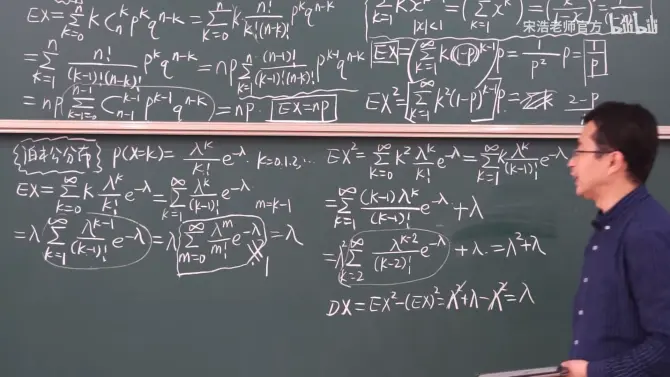 EX=∑_{k=0}^{n} k C_n^k p^k q^{n-k} = ∑_{k=0}^{n} k n!/(k!(n-k)!) p^k q^{n-k}
=∑_{k=1}^{n} n!/((k-1)!(n-k)!) p^k q^{n-k} = np∑_{k=1}^{n} (n-1)!/((k-1)!(n-k)!) p^{k-1} q^{n-k}
=np ∑_{k-1=0}^{n-1} C_{n-1}^{k-1} p^{k-1} q^{n-k} = np. EX=np
|x|<1
宋浩老师官方 bilibili
EX=∑_{k=1}^{∞} k(1-p)^{k-1} p = 1/p² p = 1/p
EX²=∑_{k=1}^{∞} k²(1-p)^{k-1} p = 2-p
泊松分布 P(X=k)= λ^k/k! e^{-λ}. k=0.1.2,…
EX=∑_{k=0}^{∞} k λ^k/k! e^{-λ} = ∑_{k=1}^{∞} λ^k/(k-1)! e^{-λ} m=k-1
=λ ∑_{k=1}^{∞} λ^{k-1}/(k-1)! e^{-λ} = λ ∑_{m=0}^{∞} λ^m/m! e^{-λ} = λ
1
EX²=∑_{k=0}^{∞} k² λ^k/k! e^{-λ} = ∑_{k=1}^{∞} k λ^k/(k-1)! e^{-λ}
=∑_{k=1}^{∞} (k-1)λ^k/(k-1)! e^{-λ} + λ
=λ² ∑_{k=2}^{∞} λ^{k-2}/(k-2)! e^{-λ} + λ. = λ²+λ
DX=EX²-(EX)²=λ²+λ-λ²=λ